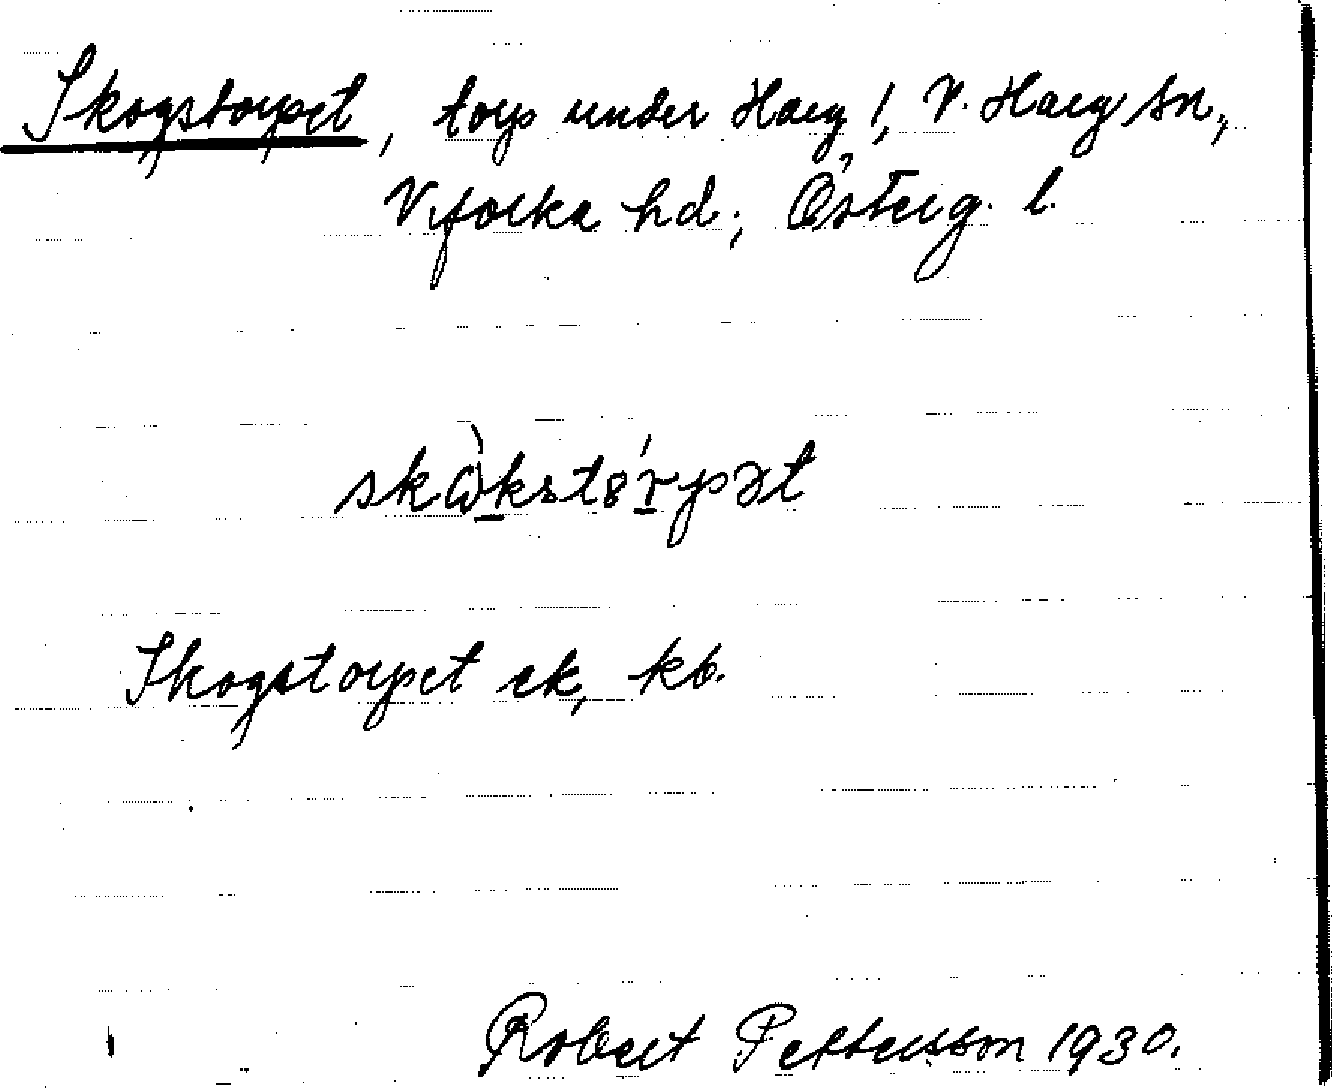 Skogstorpet, torp under Harg 1, V. Harg sn,
Vifolka hd; Österg. l.
skὼkstȣ́rpət
Skogstorpet ek, kb.
Robert Pettersson 1930.